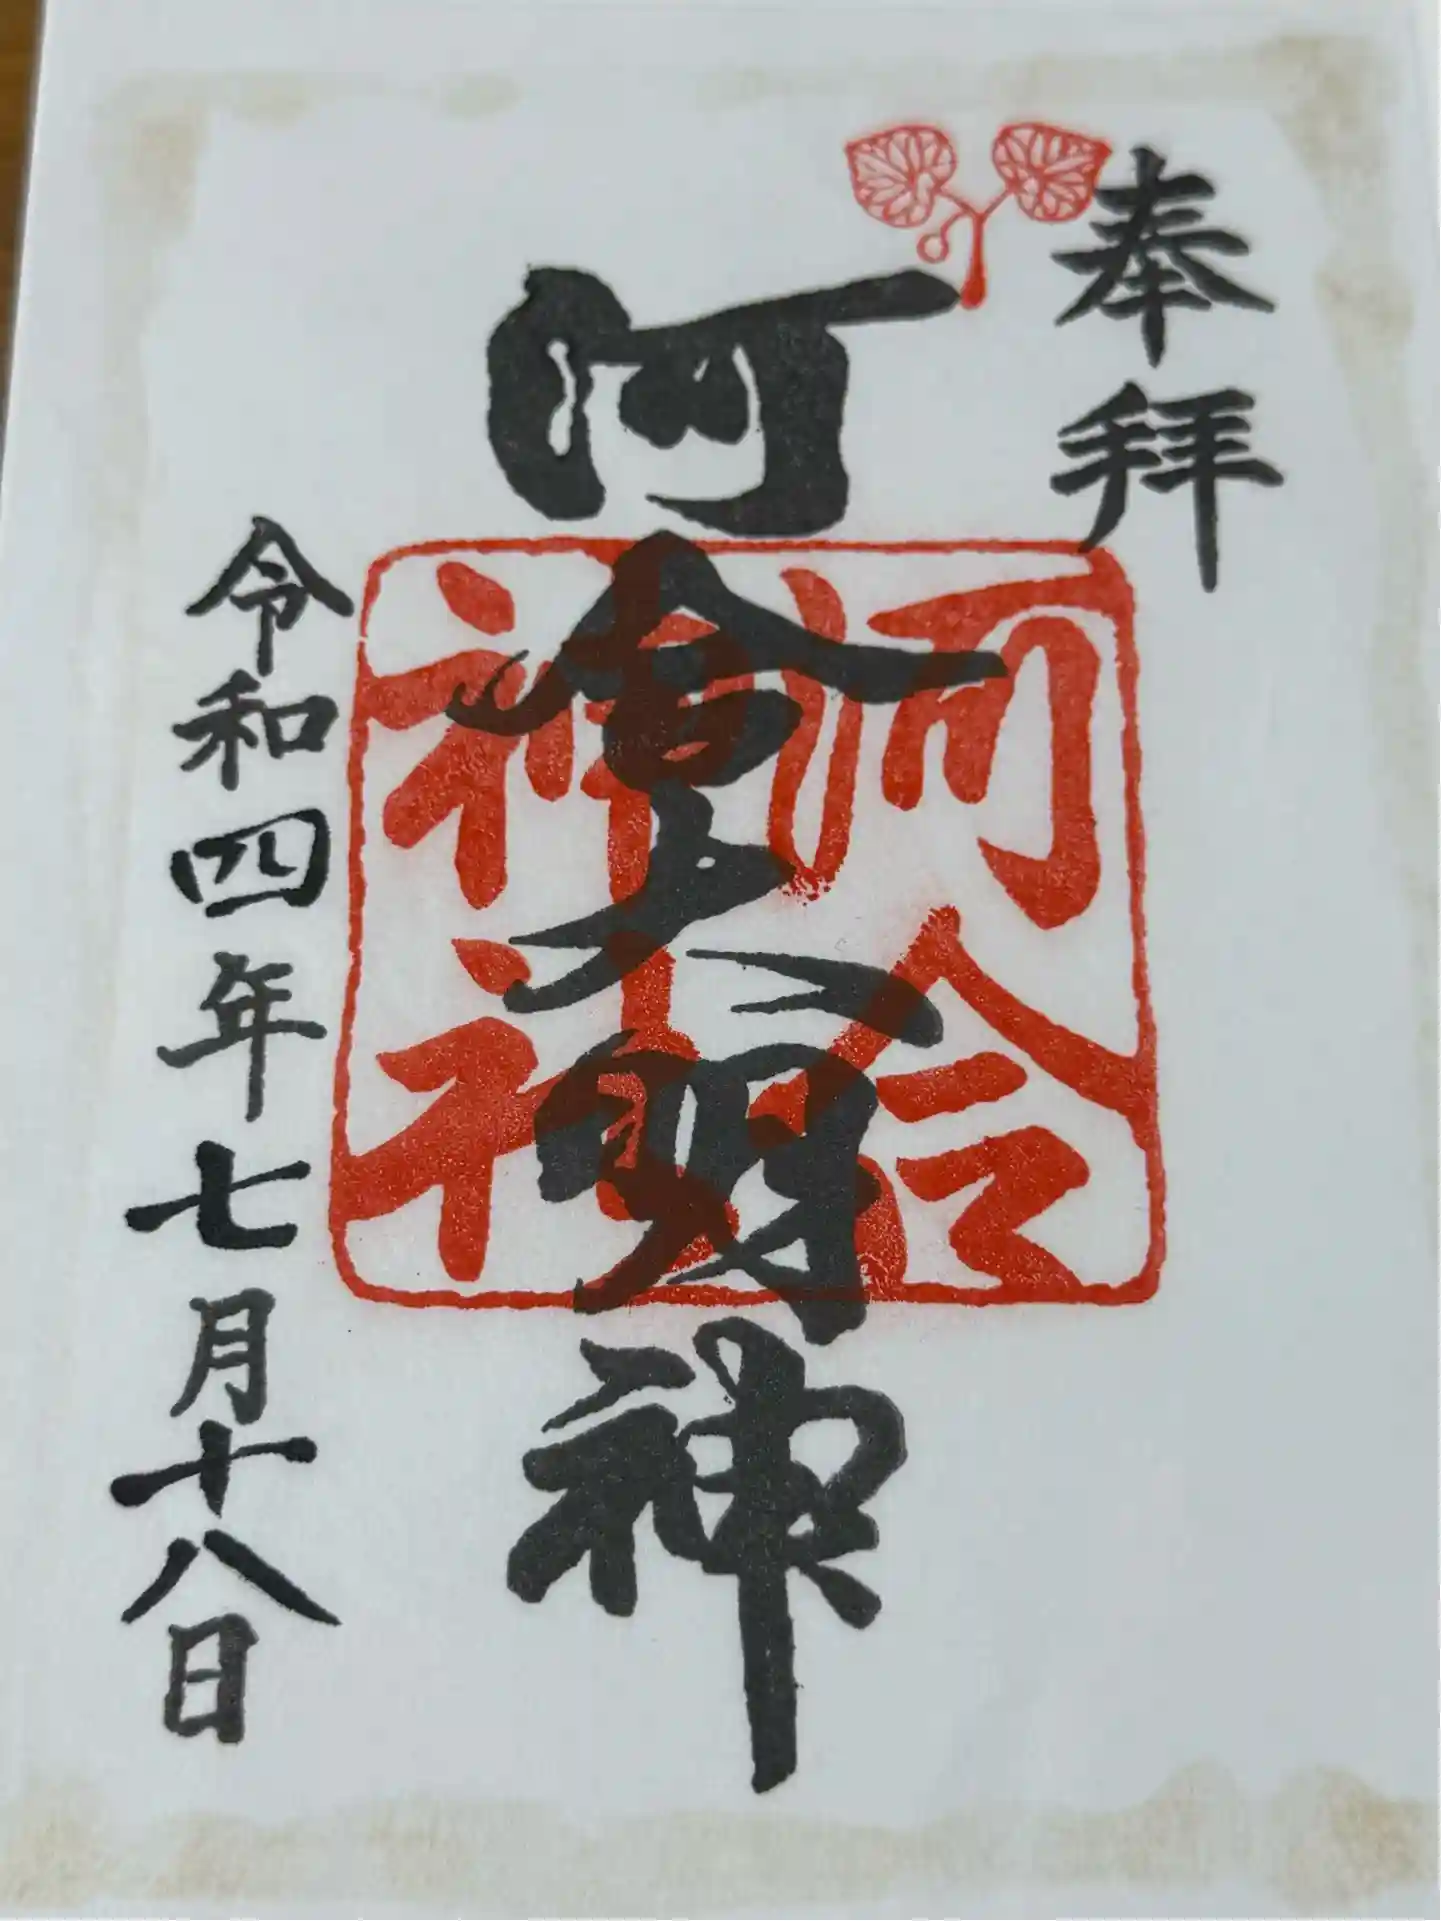 奉拝
河合大明神
河合
神社
令和四年七月十八日